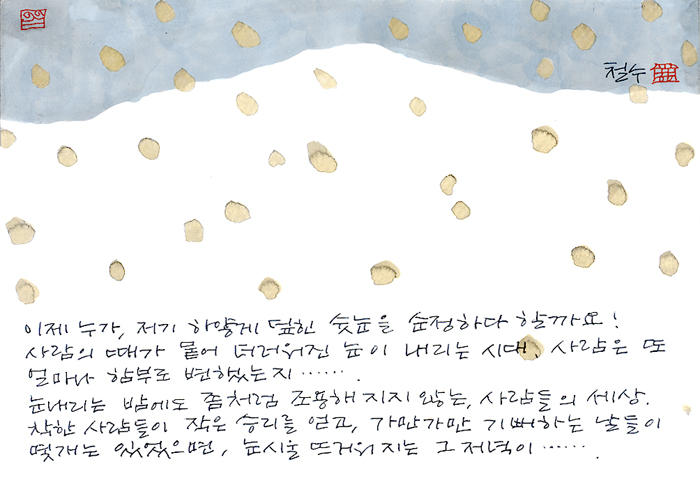 철수
이제 누가, 저기 하얗게 덮힌 숫눈을 순정하다 할까요!
사람의 때가 묻어 더러워진 눈이 내리는 시대, 사람은 또
얼마나 함부로 변했는지 …….
눈내리는 밤에도 좀처럼 조용해 지지 않는, 사람들의 세상.
착한 사람들이 작은 승리를 얻고, 가만가만 기뻐하는 날들이
몇개는 있었으면, 눈시울 뜨거워지는 그 저녁이 …….